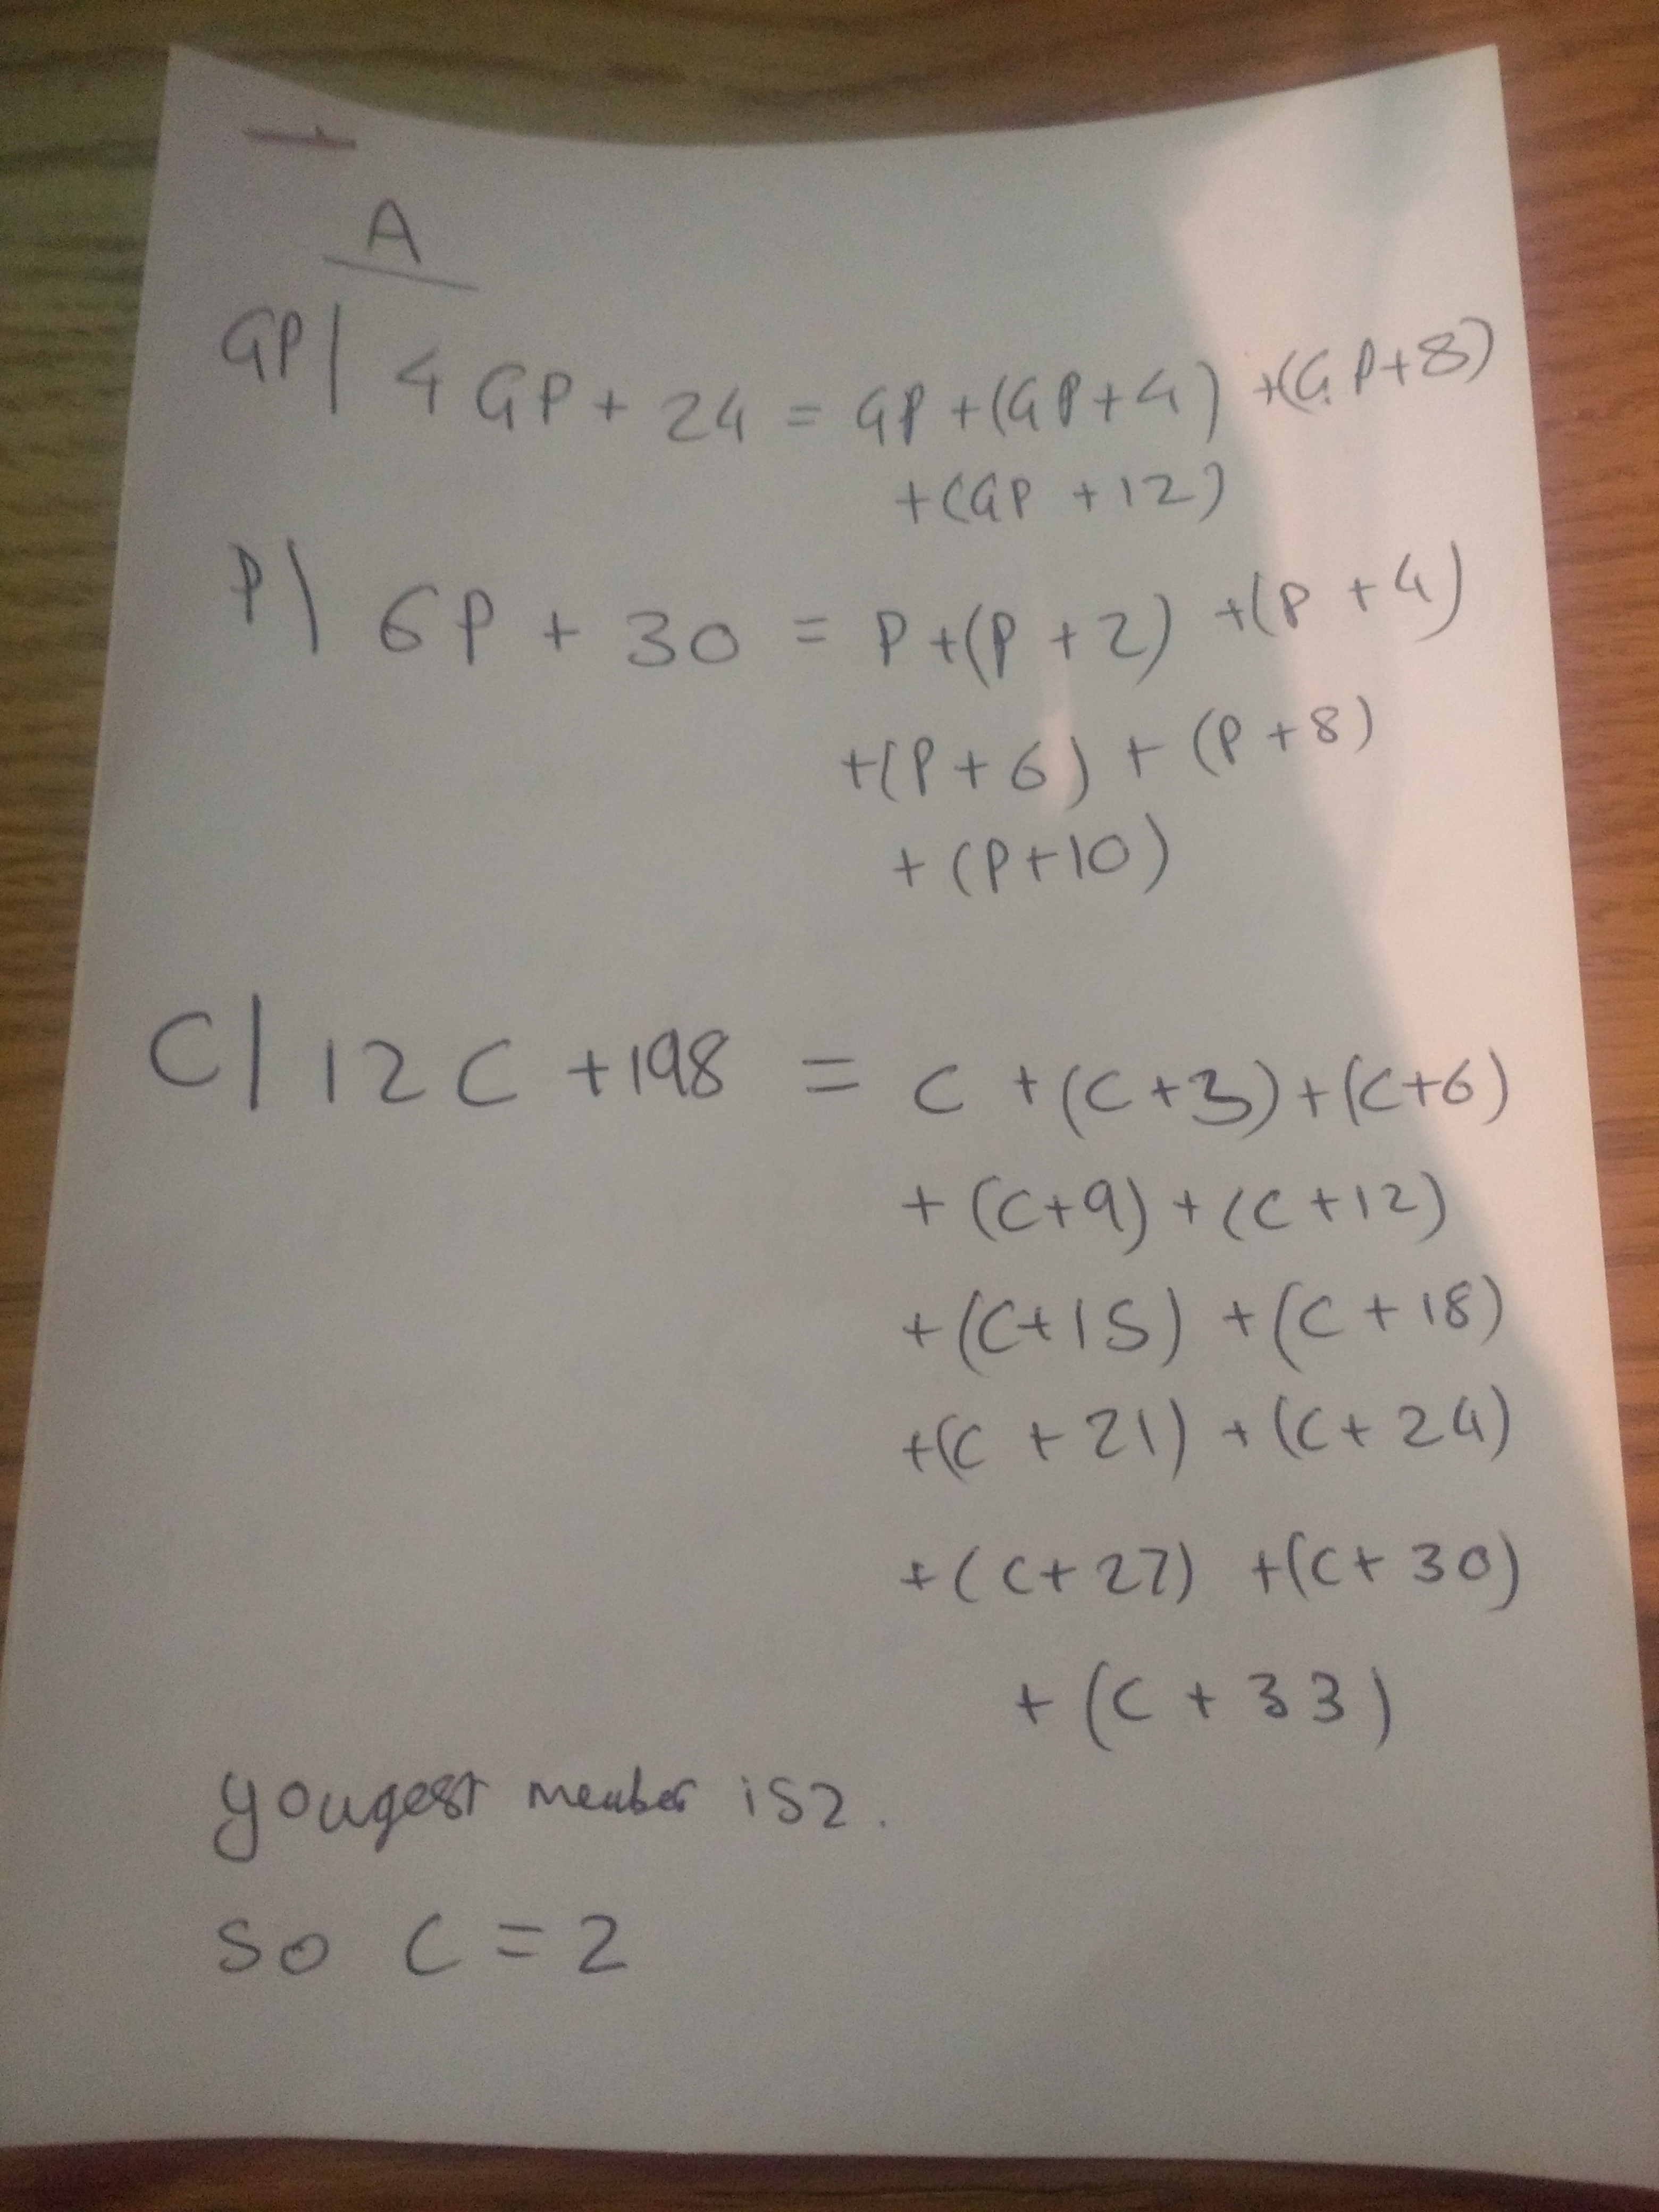 A
GP| 4GP + 24 = GP + (GP+4) + (GP+8)
+ (GP + 12)
P| 6P + 30 = P + (P + 2) + (P + 4)
+ (P + 6) + (P + 8)
+ (P+10)
C| 12C + 198 = C + (C+3) + (C+6)
+ (C+9) + (C+12)
+ (C+15) + (C+18)
+ (C + 21) + (C + 24)
+ (C+27) + (C+30)
+ (C + 33)
yougest member is 2.
so C = 2